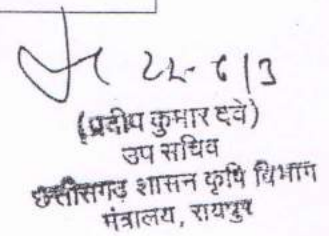 22-6/13
(प्रदीप कुमार दवे)
उप सचिव
छत्तीसगढ़ शासन कृषि विभाग
मंत्रालय, रायपुर